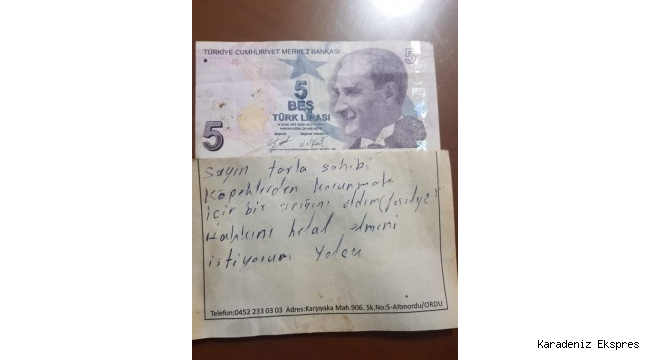 TÜRKİYE CUMHURİYET MERKEZ BANKASI
5
5
BEŞ
TÜRK LİRASI
5
Sayın tarla sahibi
Köpeklerden korunmak
için bir sırığını aldım (fasulye)
Hakkını helal etmeni
istiyorum Yolcu
Telefon:0452 233 03 03 Adres:Karşıyaka Mah.906. Sk.No:5-Altınordu/ORDU
Karadeniz Ekspres